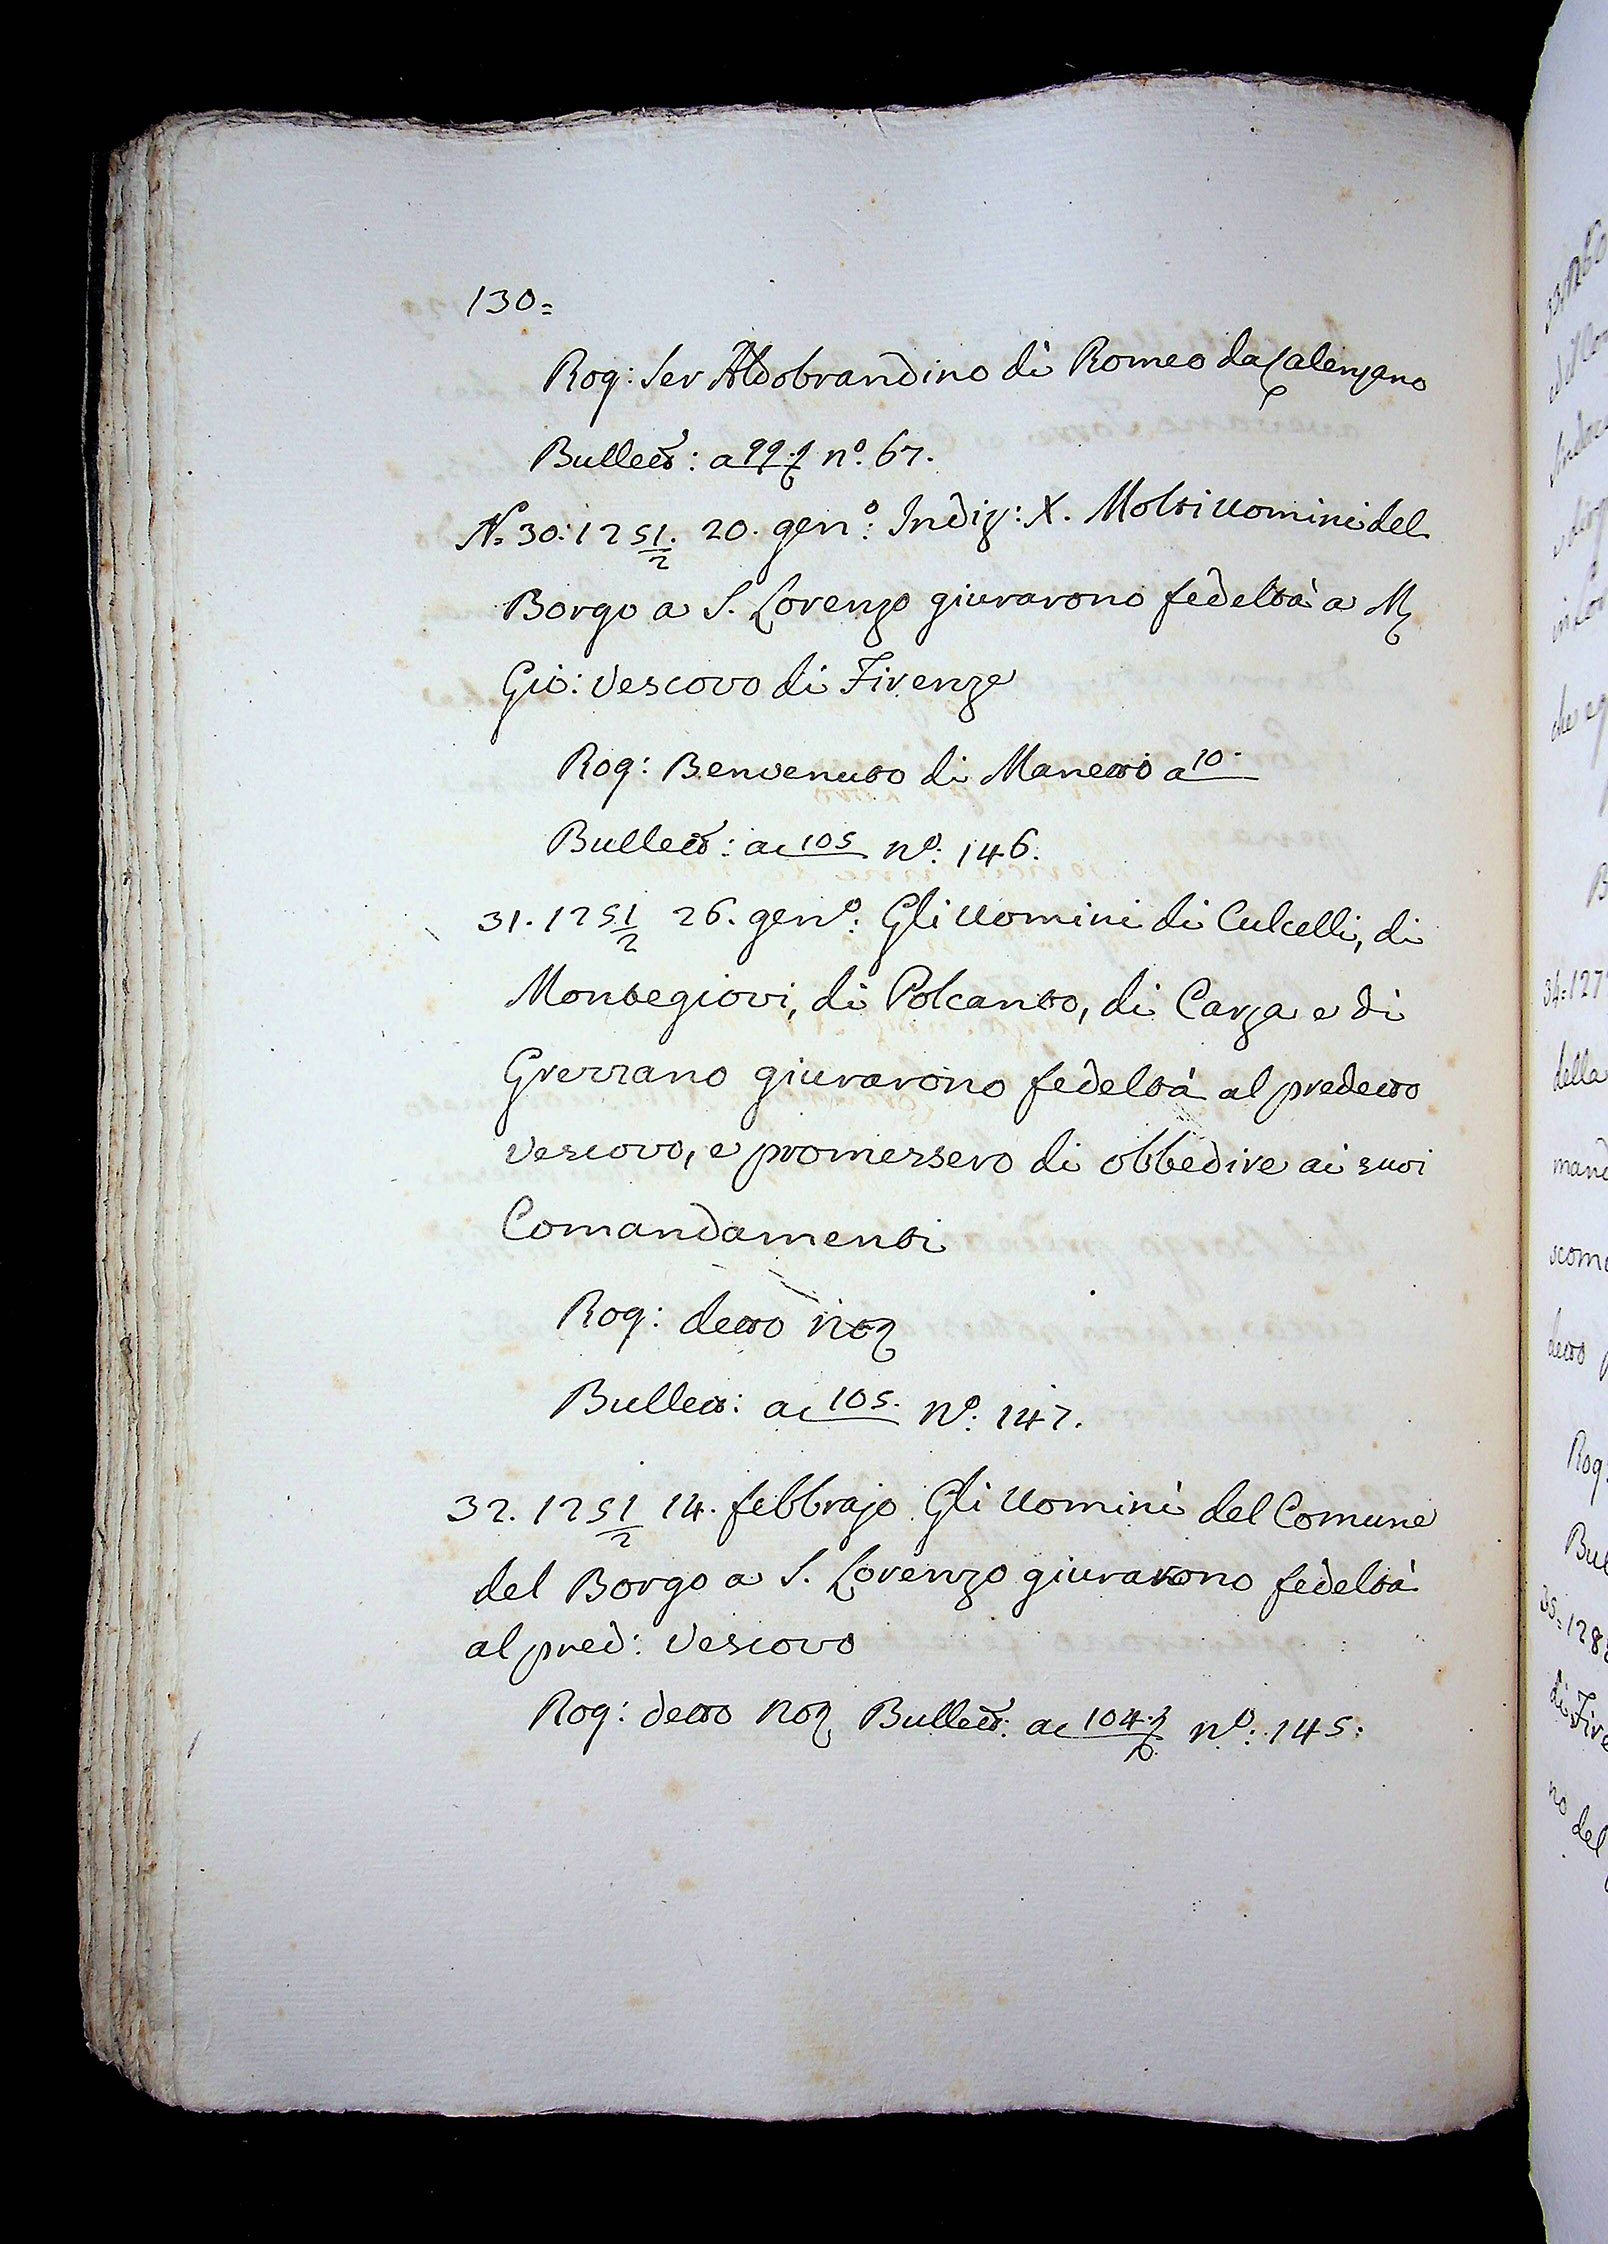 130=
Rog: Ser Aldobrandino di Romeo da Calenzano
Bullett: a 99.t nº. 67.
Nº 30: 1251/2. 20. genº: Indiz: X. Molti uomini del
Borgo a S. Lorenzo giurarono fedeltà a M
Gio: Vescovo di Firenze
Rog: Benvenuto di Manetto a 10.
Bullett: a c 105 nº: 146.
31. 1251/2 26. genº: Gli uomini di Culcelli, di
Montegiovi, di Polcanto, di Carza e di
Grezzano giurarono fedeltà al predetto
Vescovo, e promessero di obbedire ai suoi
Comandamenti
Rog: detto Not
Bullett: a c 105. nº: 147.
32. 1251/2 14. febbrajo Gli Uomini del Comune
del Borgo a S. Lorenzo giurarono fedeltà
al pred: Vescovo
Rog: detto Not Bullett: a c 104.t nº: 145:
34=127
della
mand
scom
detto
Rog:
Bul
35=128
di Fire
no del